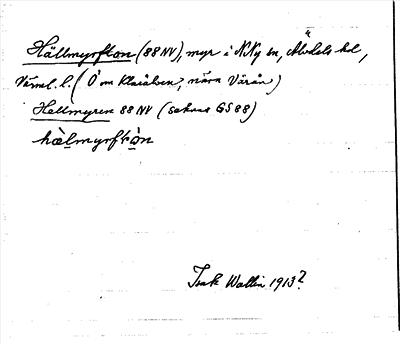 Hällmyrfłon (88 NV), myr i N. Ny sn, Älvdals hd,
Värml. l. (Ö om Klarälven, nära Värån)
Hellmyren 88 NV (saknas GS 88)
hälmyrfłòn
Isak Wallin 1913?